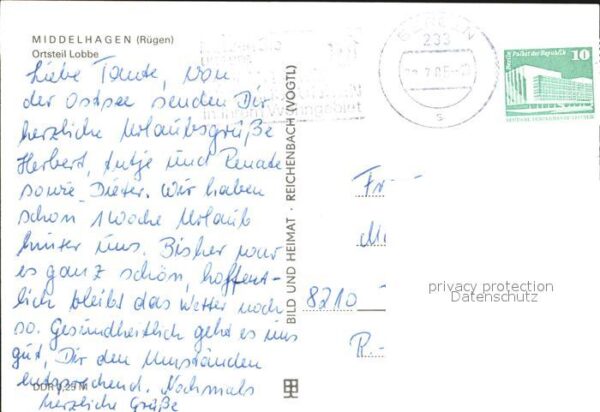 MIDDELHAGEN (Rügen)
Ortsteil Lobbe
Liebe Tante, Von
der Ostsee senden Dir
herzliche Urlaubsgrüße
Herbert, Antje und Renate
sowie Dieter. Wir haben
schon 1 Woche Urlaub
hinter uns. Bisher war
es ganz schön, hoffent-
lich bleibt das Wetter noch
so. Gesundheitlich geht es uns
gut, Dir den Umständen
entsprechend. Nochmals
herzliche Grüße
DDR 0,25 M
BILD UND HEIMAT · REICHENBACH (VOGTL)
BERGEN
233
Berlin, Palast der Republik
10
Fr
8210
R.-
privacy protection
Datenschutz